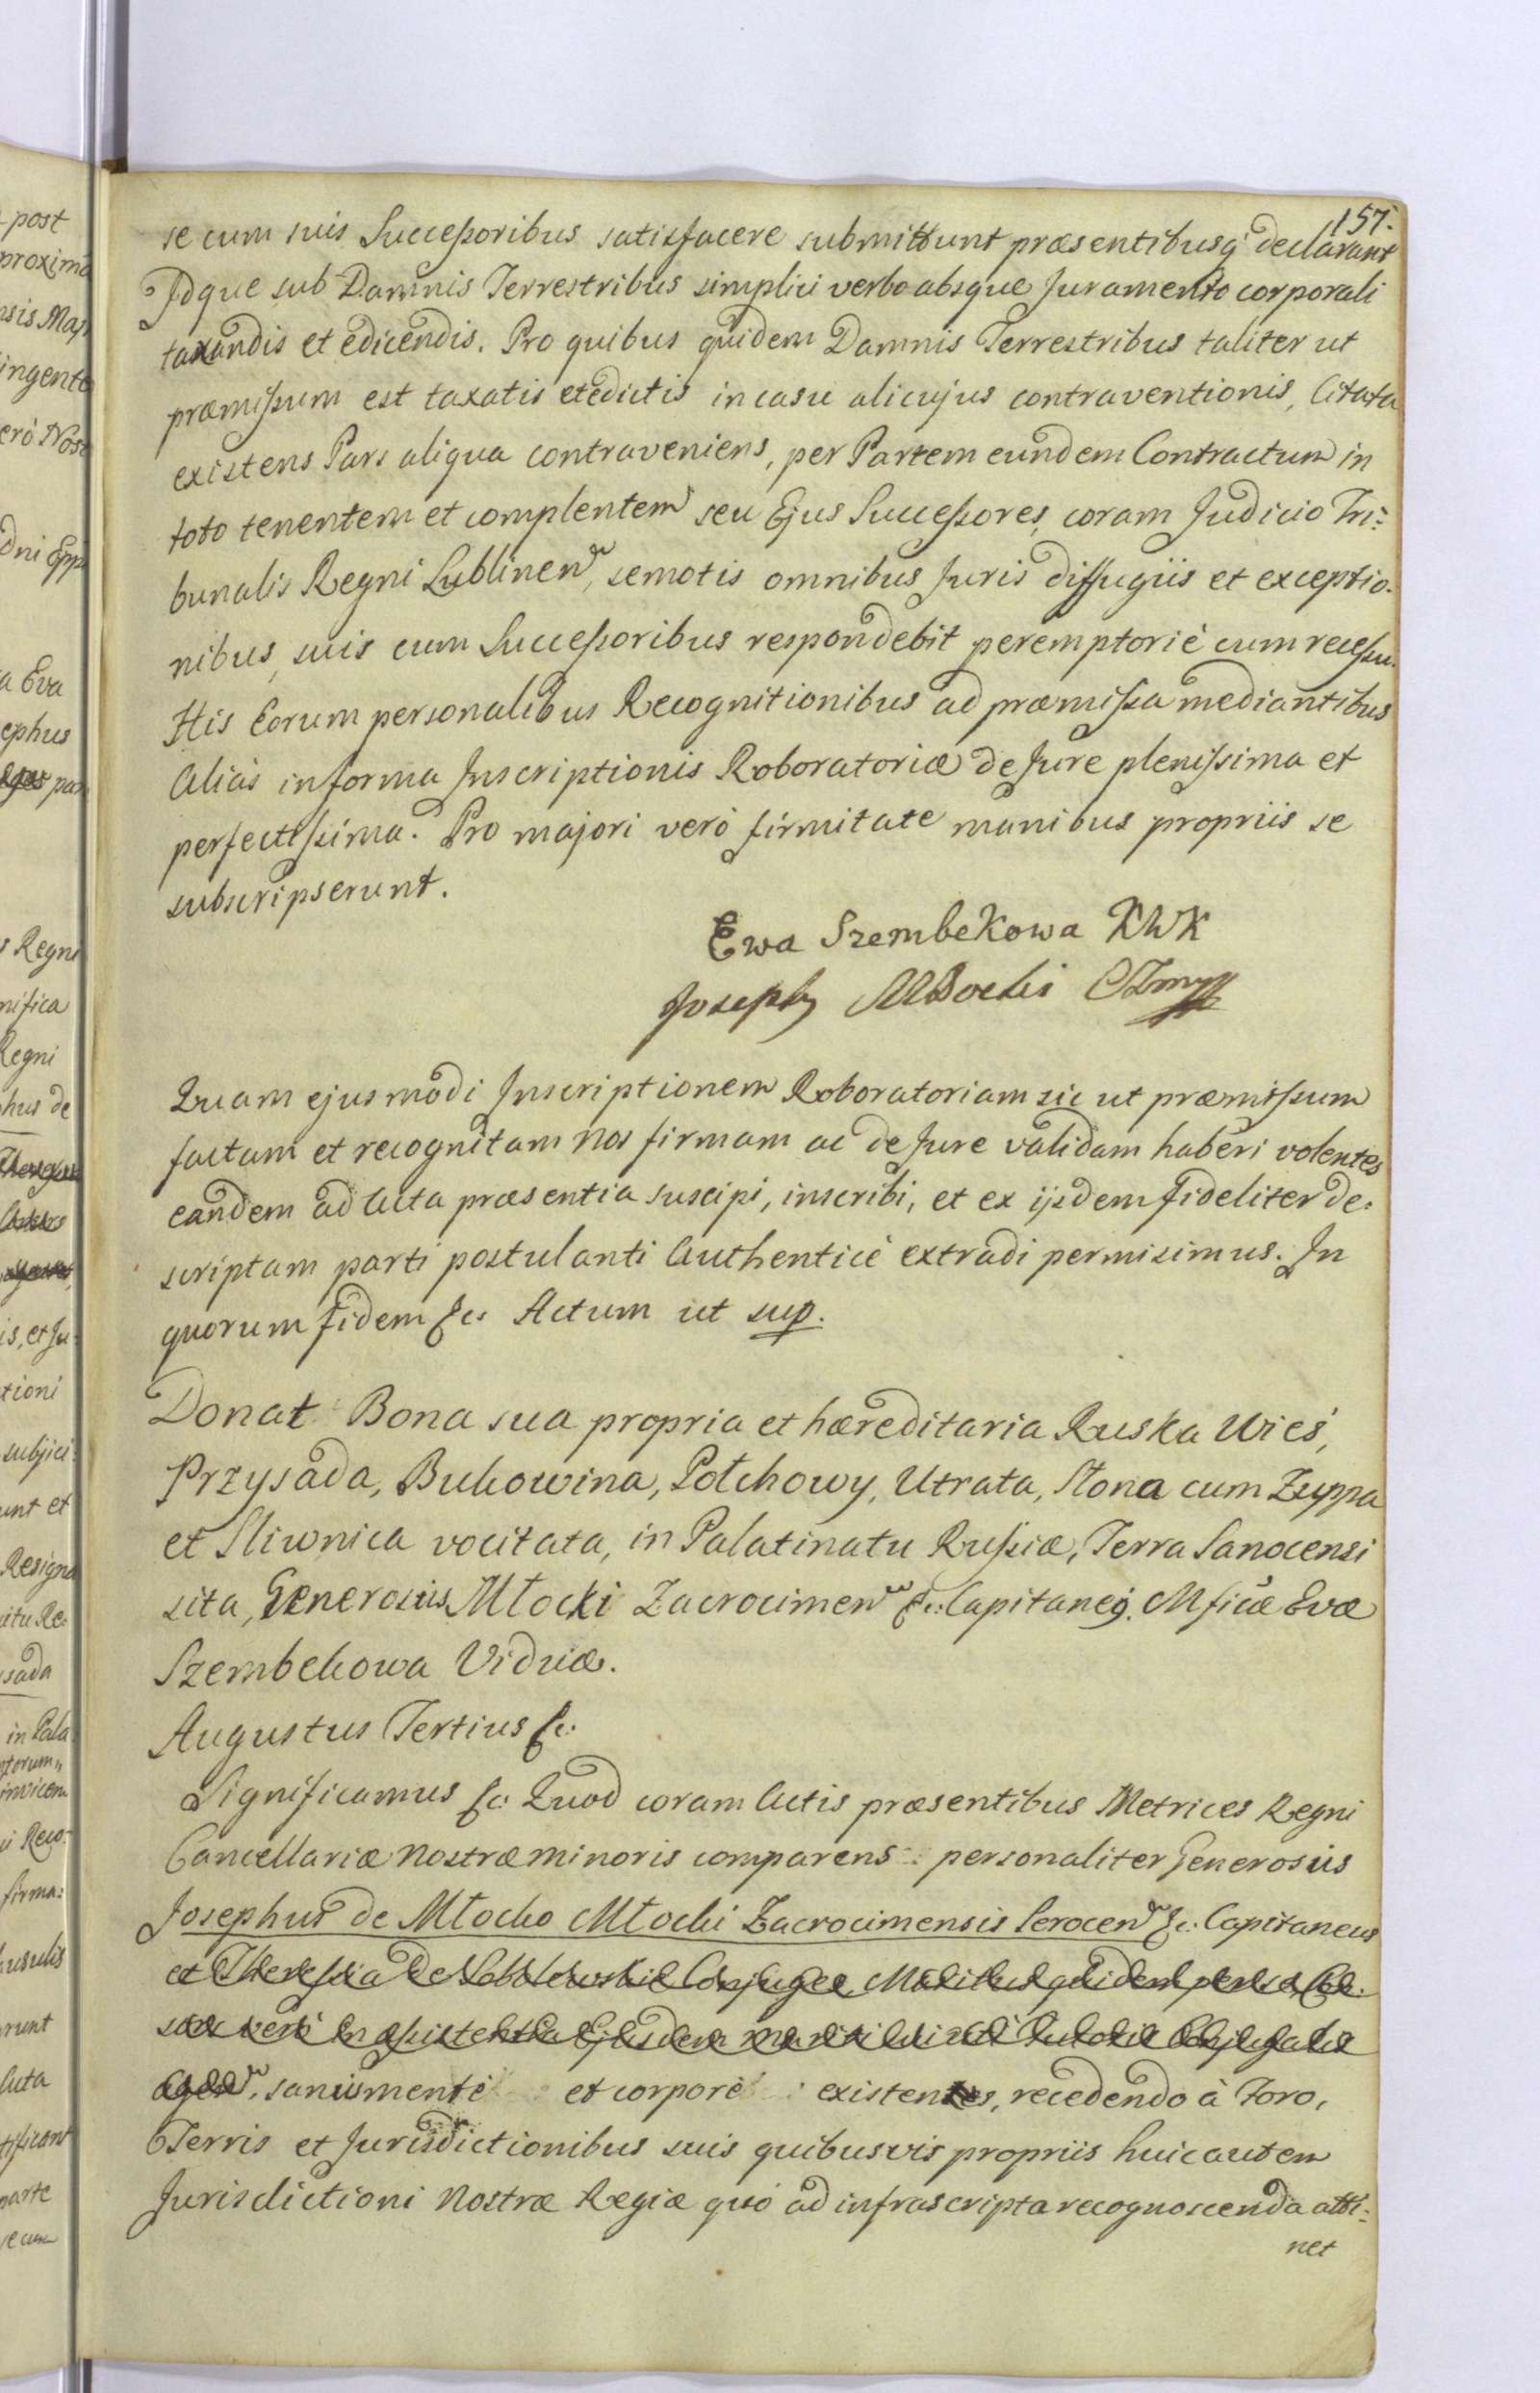 157.
se cum suis Successoribus satisfacere submittunt præsentibusq̃ declarant
Idque sub Damnis Terrestribus simplici verbo absque Juramento corporali
taxandis et edicendis. Pro quibus quidem Damnis Terrestribus taliter ut
præmissum est taxatis et edictis in casu alicujus contraventionis, Citata
existens Pars aliqua contraveniens, per Partem eundem Contractum in
toto tenentem et complentem seu Ejus Successores, coram Judicio Tri=
bunalis Regni Lublinen, semotis omnibus Juris diffugiis et exceptio-
nibus, suis cum Successoribus respondebit peremptoriè cum recessu.
His Eorum personalibus Recognitionibus ad præmissa mediantibus
Aliàs in forma Inscriptionis Roboratoriæ de Jure plenissima et
perfectissima. Pro majori verò firmitate manibus propriis se
subscripserunt.
Ewa Szembekowa KWK
Joseph Młocki
Quam ejusmodi Inscriptionem Roboratoriam sic ut præmissum
factam et recognitam Nos firmam ac de Jure validam haberi volentes
eandem ad Acta præsentia suscipi, inscribi, et ex ijsdem fideliter de=
scriptam parti postulanti Authenticè extradi permisimus. In
quorum fidem &c: Actum ut sup.
Donat Bona sua propria et hæreditaria Ruska Wieś,
Przysada, Bukowina, Połchowy, Utrata, Słona cum Zuppa
et Sliwnica vocitata, in Palatinatu Russiæ, Terra Sanocensi
sita, Generosus Młocki Zacrocimen &c: Capitaneg. Mficæ Evæ
Szembekowa Viduæ.
Augustus Tertius &c:
Significamus &c: Quod coram Actis præsentibus Metrices Regni
Cancellariæ Nostræ minoris comparens personaliter Generosus
Josephus de Młocko Młocki Zacrocimensis Serocen &c: Capitaneus
et Theressia de Conjuges, Maritus quidem per se,
verò in assistentia Ejusdem mariti sui
agen, sanus mente et corpore existens, recedendo à Foro,
Terris et Jurisdictionibus suis quibusvis propriis huic autem
Jurisdictioni Nostræ Regiæ quó ad infrascripta recognoscenda atti=
net